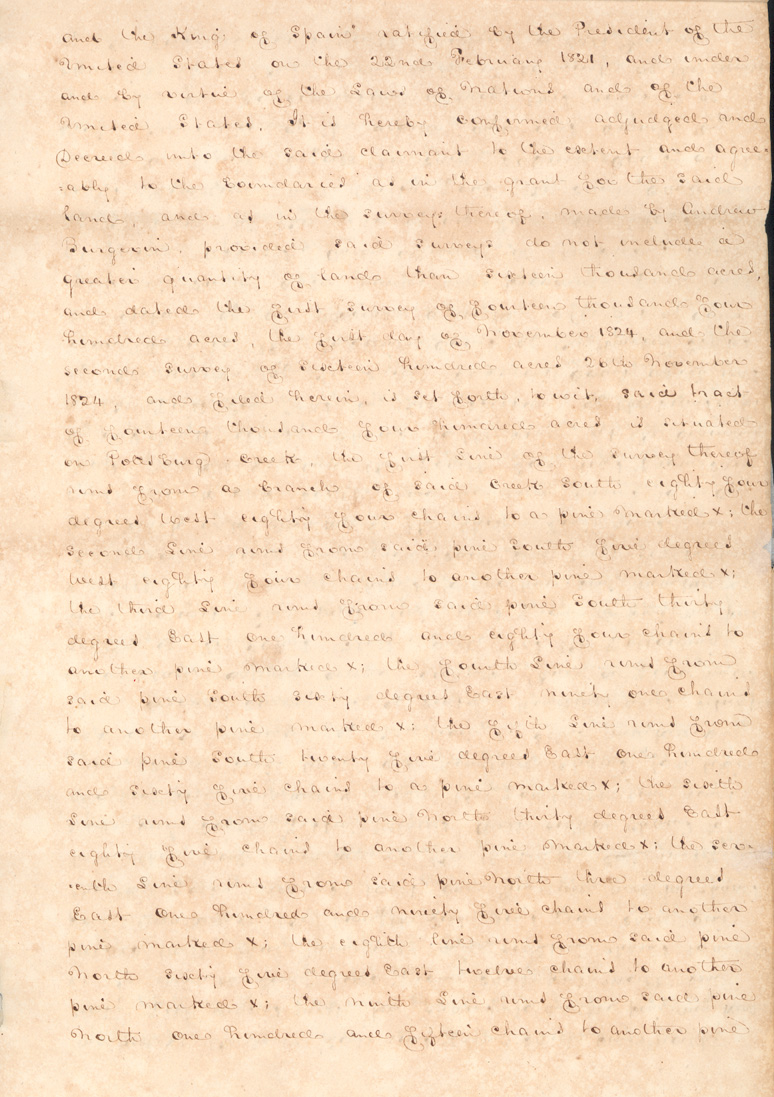 and the King of Spain" ratified by the President of the
United States on the 22nd February 1821, and under
and by virtue of the Laws of Nations and of the
United States. It is hereby confirmed, adjudged and
Decreed, unto the said claimant to the extent and agree-
=ably to the boundaries as in the grant for the said
land, and as in the surveys thereof, made by Andrew
Burgevin, provided said surveys do not include a
greater quantity of land than sixteen thousand acres,
and dated the first survey of Fourteen thousand Four
hundred acres, the first day of November 1824, and the
second survey of sixteen hundred acres 26th November
1824, and filed herein, is set forth, to wit, said tract
of Fourteen thousand Four hundred acres is situated
on Potsburg Creek, the first Line of the survey thereof
runs From a branch of said Creek South eighty Four
degrees West eighty Four chains to a pine marked x; the
second Line runs From said pine South Five degrees
West eighty Four chains to another pine marked x;
the third Line runs From said pine South thirty
degrees East one hundred and eighty Four chains to
another pine marked x; the Fourth Line runs From
said pine South sixty degrees East ninety one chains
to another pine marked x; the Fifth Line runs From
said pine South twenty Five degrees East one hundred
and sixty Five chains to a pine marked x; the sixth
Line runs From said pine North thirty degrees East
eighty Five chains to another pine marked x; the sev-
enth Line runs From said pine North three degrees
East one hundred and ninety Five chains to another
pine marked x; the eighth line runs From said pine
North sixty Five degrees East twelve chains to another
pine marked x; the ninth Line runs From said pine
North one hundred and Fifteen chains to another pine